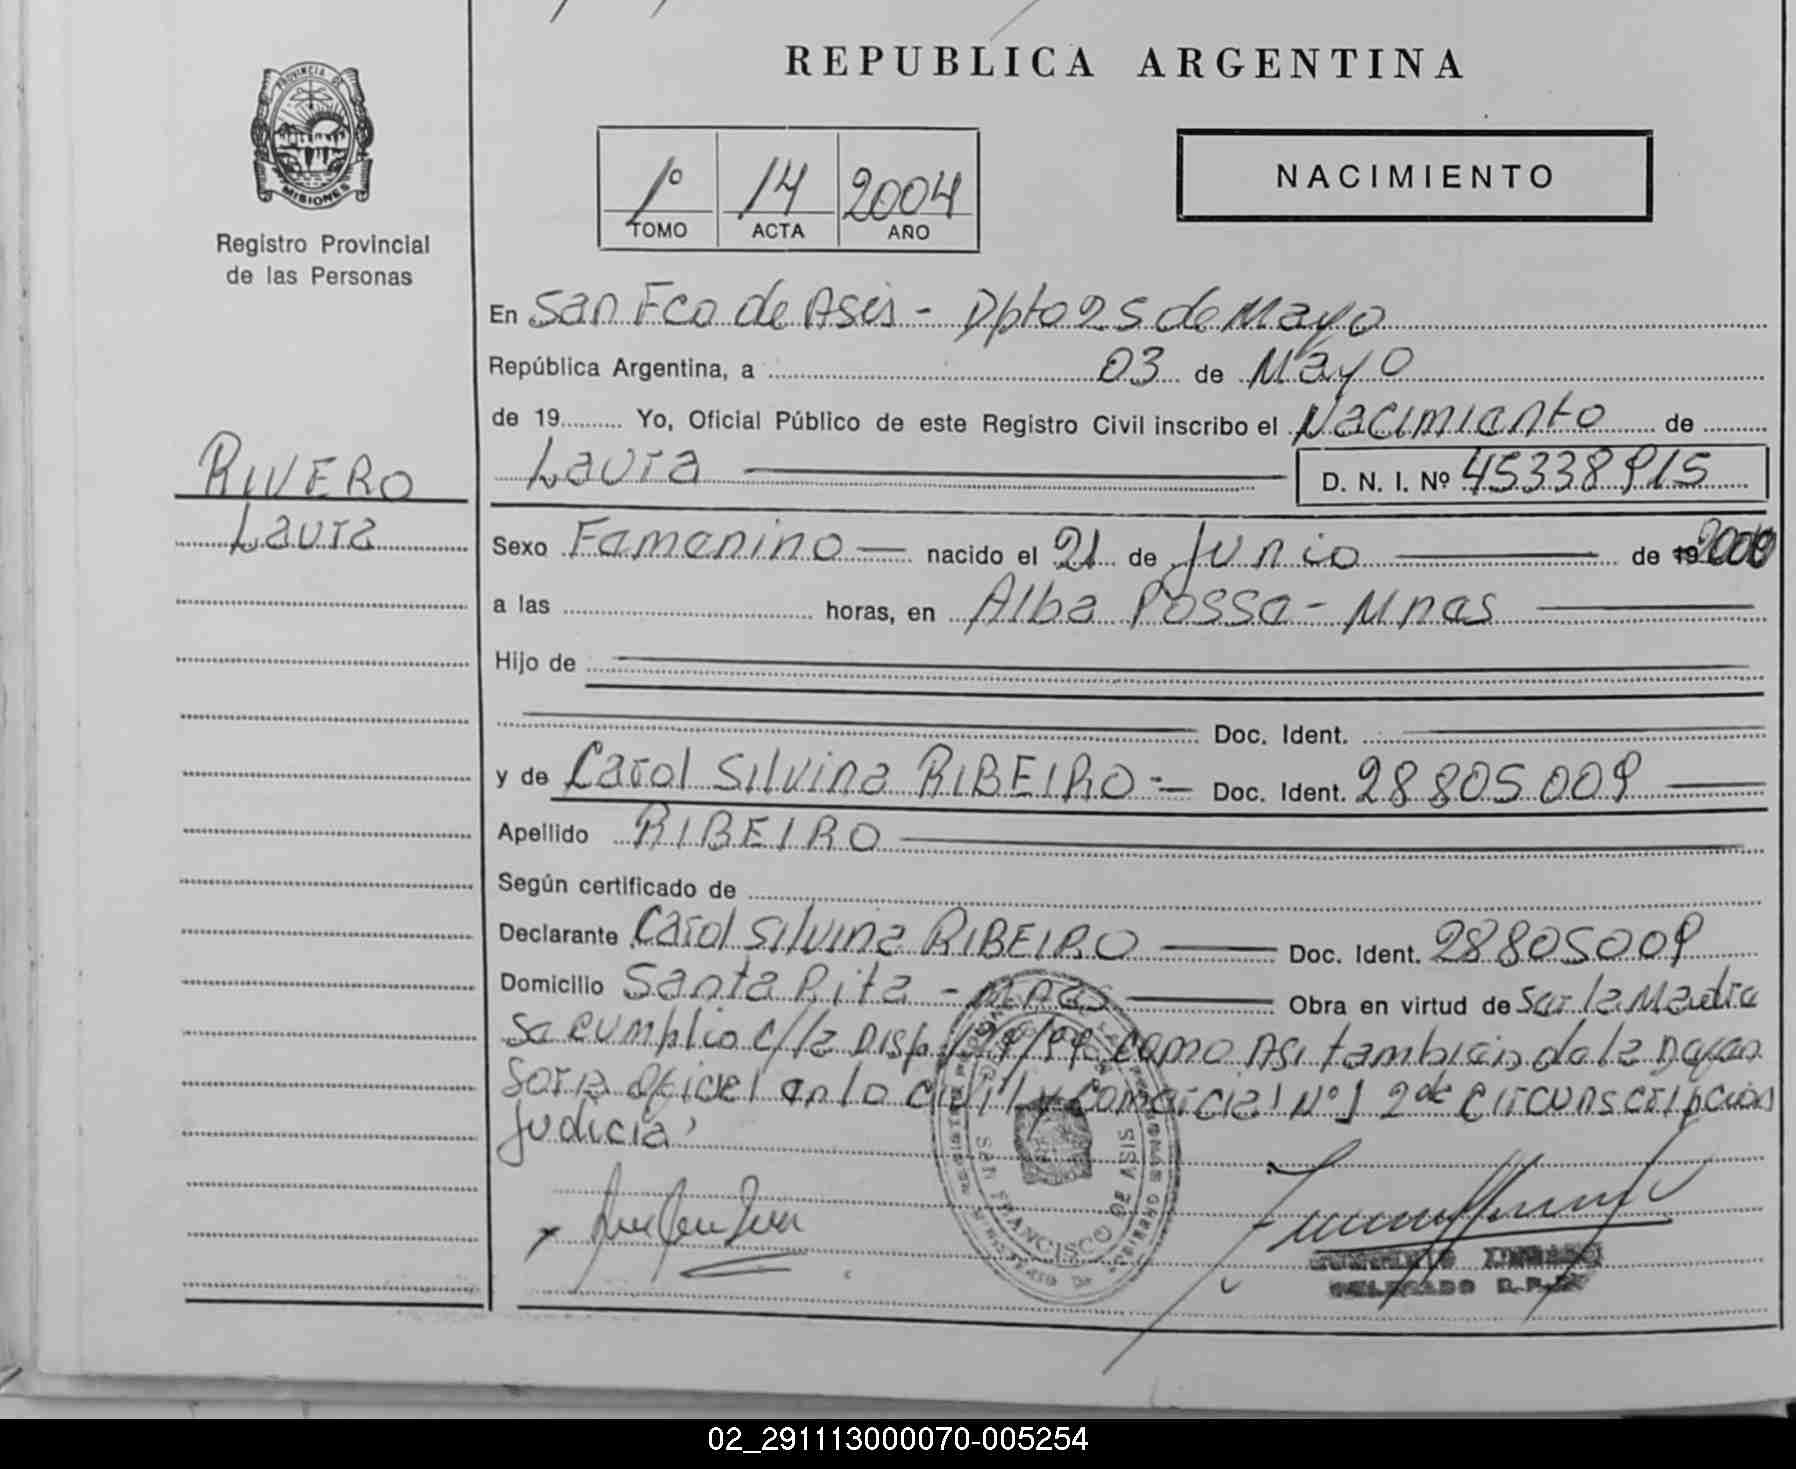 REPUBLICA ARGENTINA
PROVINCIA DE
MISIONES
Registro Provincial
de las Personas
1º 14 2004
TOMO ACTA AÑO
NACIMIENTO
En San Fco de Asis - Dpto 25 de Mayo
República Argentina, a 03 de Mayo
de 19 Yo, Oficial Público de este Registro Civil inscribo el Nacimiento de
Laura D. N. I. Nº 45338915
RIVERO
Laura
Sexo Femenino nacido el 21 de Junio de 19
a las horas, en Alba Posse - Mnes
Hijo de
Doc. Ident.
y de Carol Silvina RIBEIRO = Doc. Ident. 28805009
Apellido RIBEIRO
Según certificado de
Declarante Carol Silvina RIBEIRO Doc. Ident. 28805009
Domicilio Santa Rita - Mnes Obra en virtud de Ser la Madre
Se cumplio c/la Disp. como Asi tambien de la Defen
soria oficial en lo Civil y Comercial Nº 1 2da Circunscripcion
Judicial
SAN FRANCISCO DE ASIS
DELEGADO R.P.
02_291113000070-005254